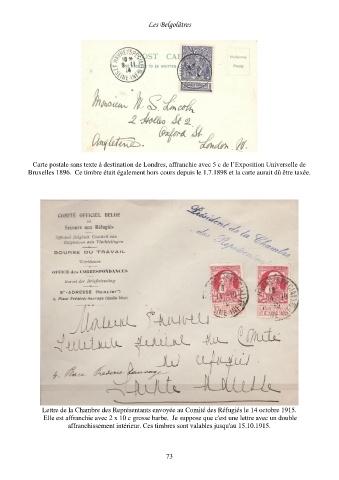 Les Belgolâtres
POST CARD
Monsieur W. S. Lincoln
2 Holles St 2
Oxford St
Angleterre. London. W.
Carte postale sans texte à destination de Londres, affranchie avec 5 c de l'Exposition Universelle de
Bruxelles 1896. Ce timbre était également hors cours depuis le 1.7.1898 et la carte aurait dû être taxée.
COMITÉ OFFICIEL BELGE
Secours aux Réfugiés
BOURSE DU TRAVAIL
OFFICE DES CORRESPONDANCES
Président de la Chambre
des Représentants
Monsieur
Secrétaire général du Comité
des réfugiés
Sainte Adresse
Lettre de la Chambre des Représentants envoyée au Comité des Réfugiés le 14 octobre 1915.
Elle est affranchie avec 2 x 10 c grosse barbe. Je suppose que c'est une lettre avec un double
affranchissement intérieur. Ces timbres sont valables jusqu'au 15.10.1915.
73